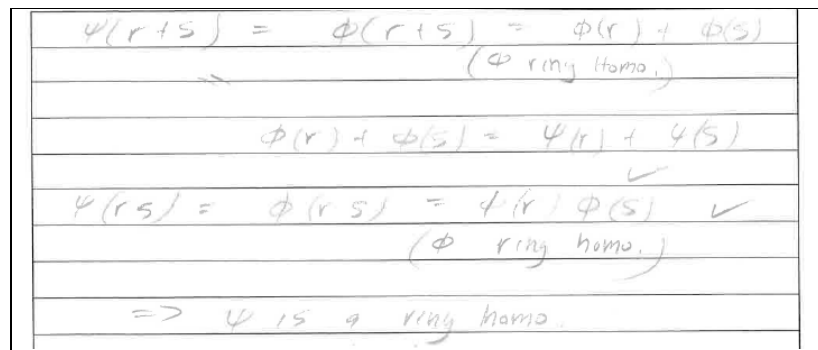 ψ(r+s) = φ(r+s) = φ(r) + φ(s)
(φ ring Homo.)
φ(r) + φ(s) = ψ(r) + ψ(s)
✓
ψ(rs) = φ(rs) = φ(r) φ(s) ✓
(φ ring homo.)
=> ψ is a ring homo.